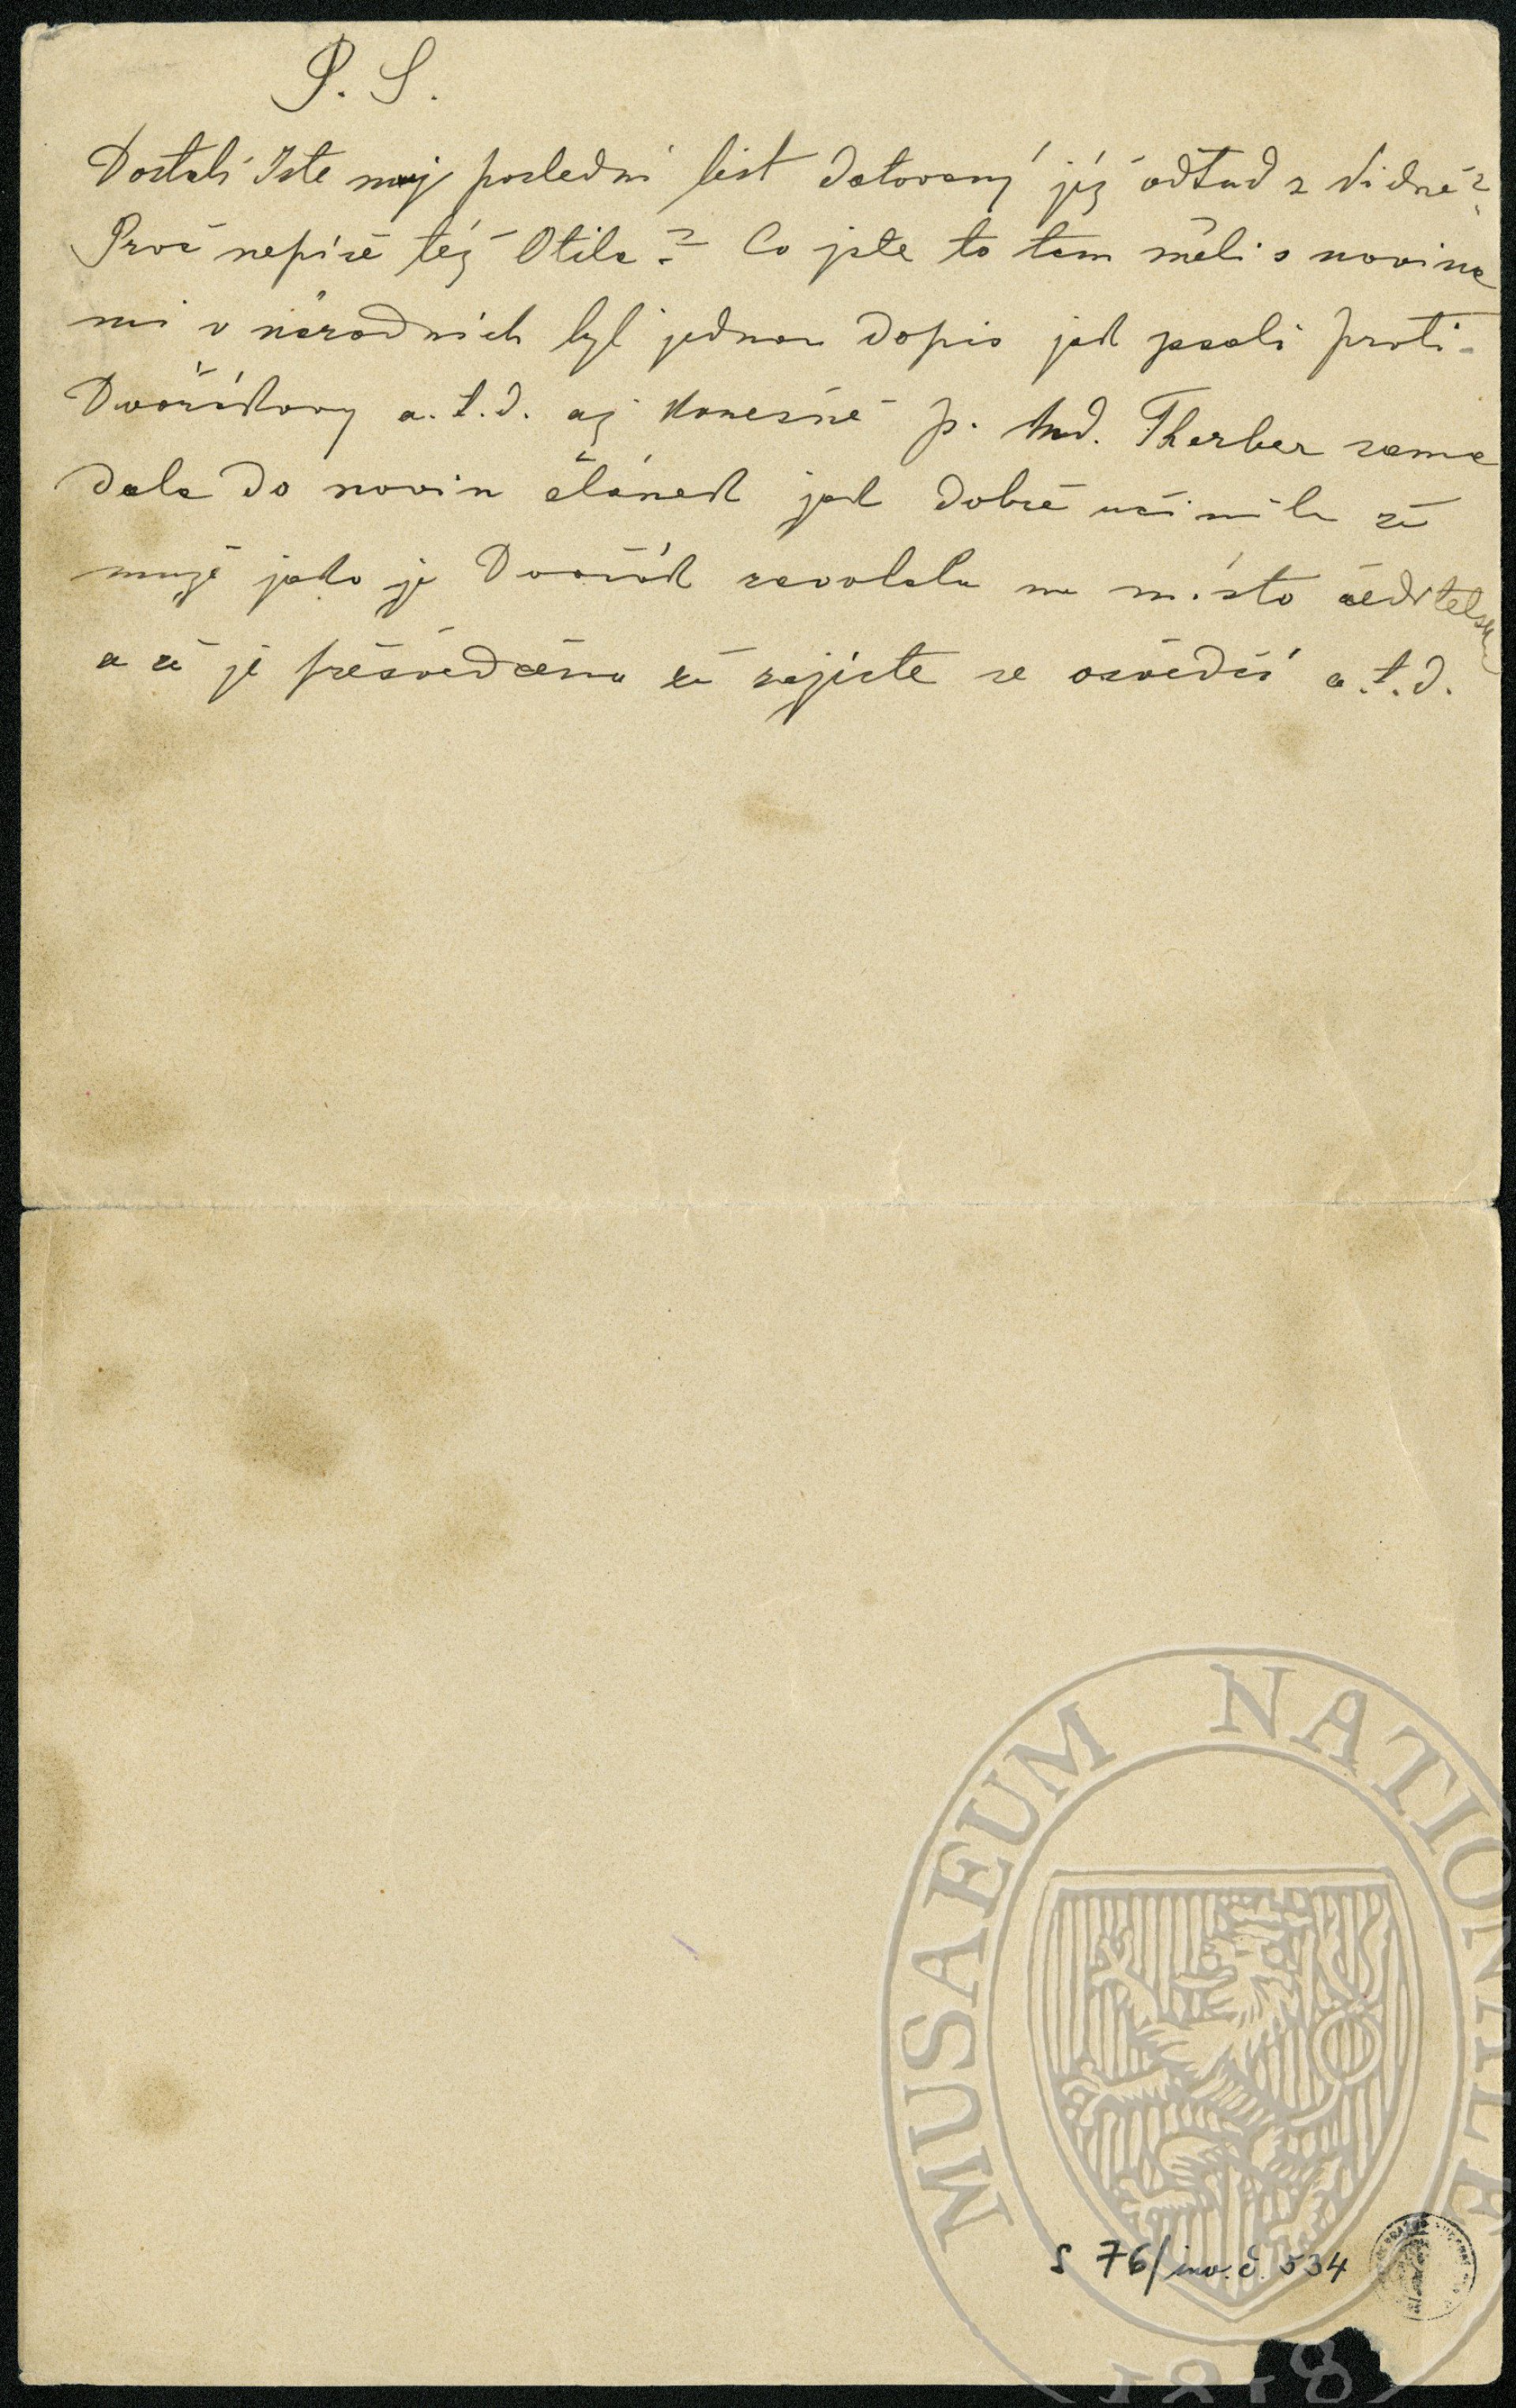 P. S.
Dostali Jste muj poslední list datovaný již odtud z Vidně?
Proč nepíše též Otila? Co jste to tam měli s novina
mi v národních byl jednou dopis jak psali proti
Dvořákovy a.t.d. až konečně p. Thurber sama
dala do novin článek jak dobře učinila že
muže jako je Dvořák zavolala na místo ředitelské
a že je přesvědčena že zajiste se osvědčí a.t.d.
MUSAEUM NATIONALE
1818
S 76/inv. č. 534